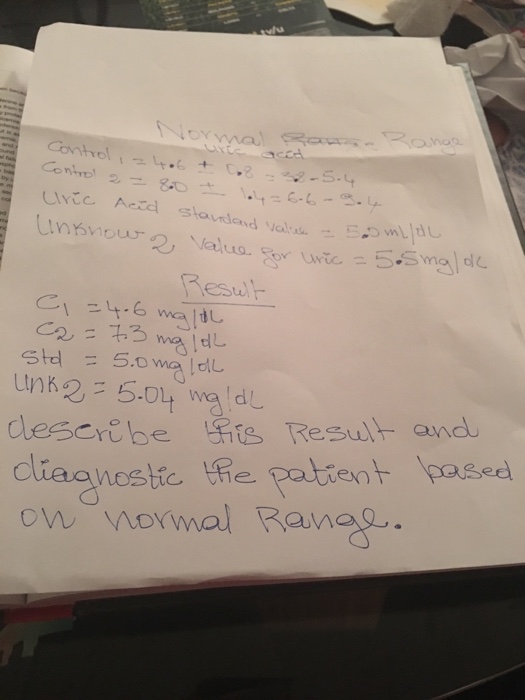 Normal Range
Uric acid
Control 1 = 4.6 ± 0.8 = 3.8 - 5.4
Control 2 = 8.0 ± 1.4 = 6.6 - 9.4
Uric Acid standard value = 5.0 mL/dL
Unknow 2 Value for uric = 5.5 mg/dL
Result
C1 = 4.6 mg/dL
C2 = 7.3 mg/dL
Std = 5.0 mg/dL
Unk 2 = 5.04 mg/dL
describe this Result and
diagnostic the patient based
on normal Range.